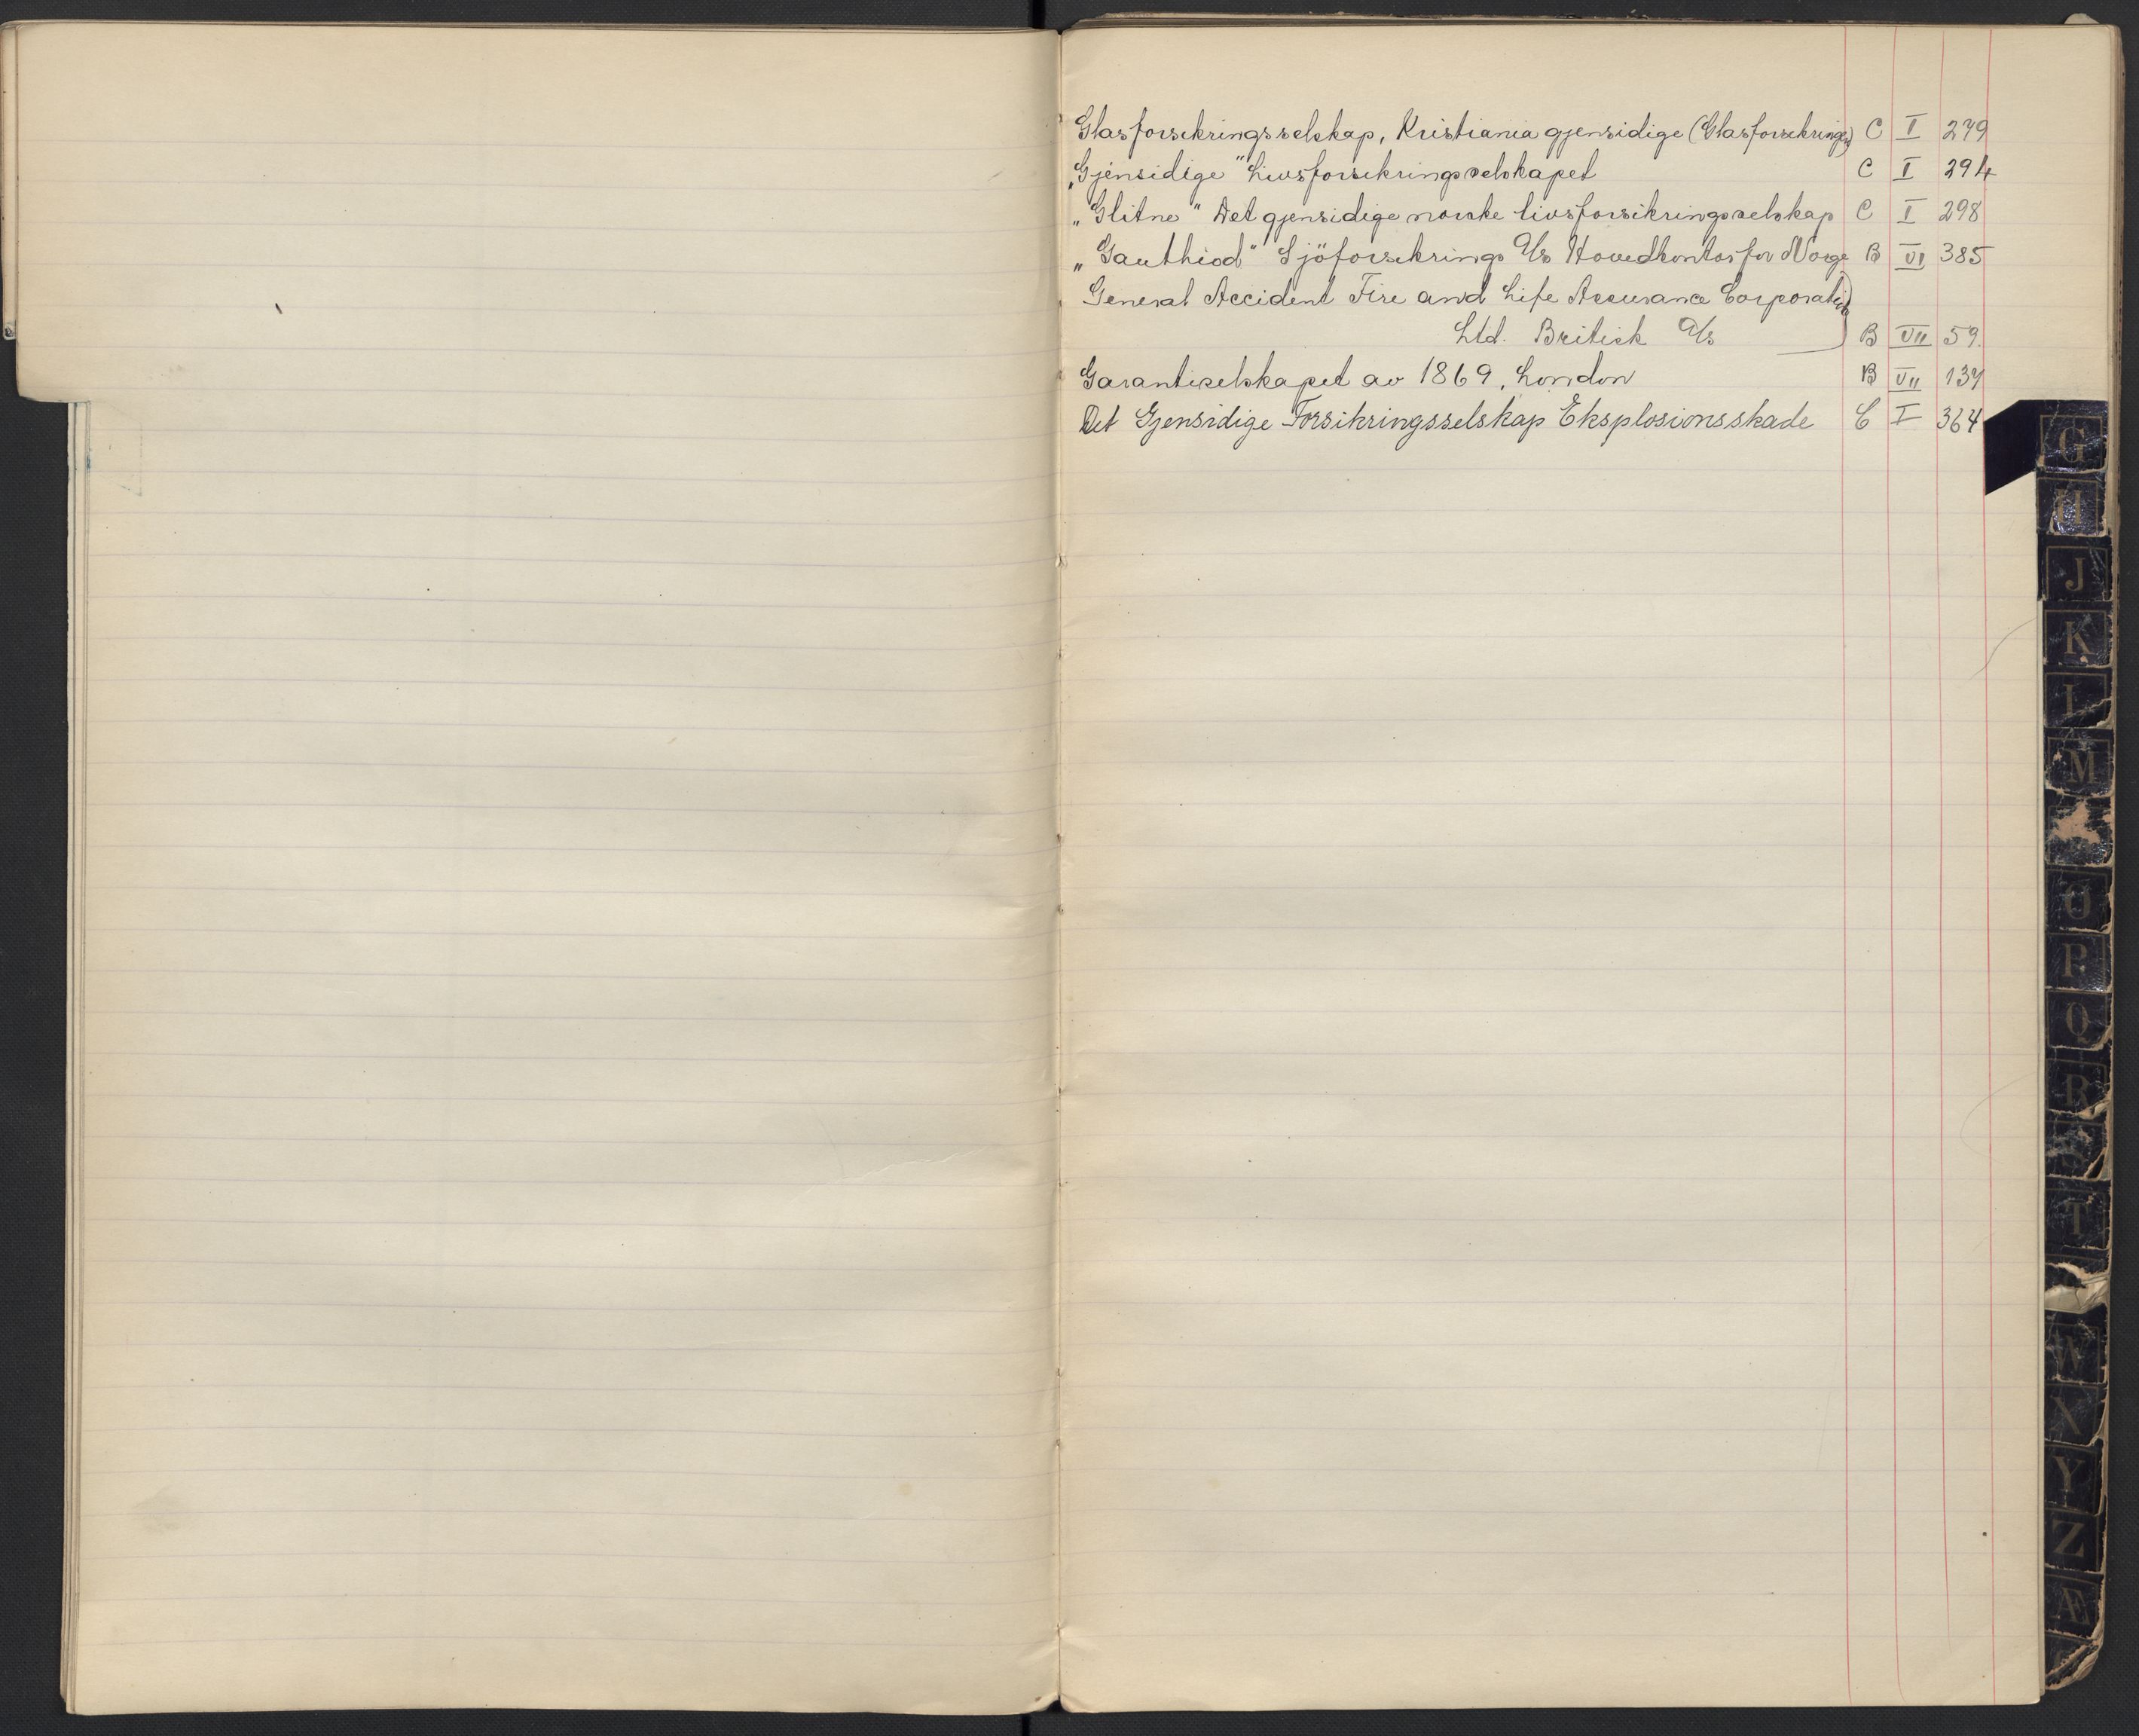 Glasforsikringsselskap, Kristiania gjensidige (Glasforsikringen) C I 279
„Gjensidige" Livsforsikringsselskapet C I 294
„Glitne" Det gjensidige norske livsforsikringsselskap C I 298
„Gauthiod" Sjöforsikrings A/s Hovedkontor for Norge B VI 385
General Accident Fire and Life Assurance Corporation
Ltd. Britisk A/s B VII 59.
Garantiselskapet av 1869, London B VII 137
Det Gjensidige Forsikringsselskap Eksplosionsskade C I 364
G
H
J
K
L
M
O
P
Q
R
S
T
W
X
Y
Z
Æ